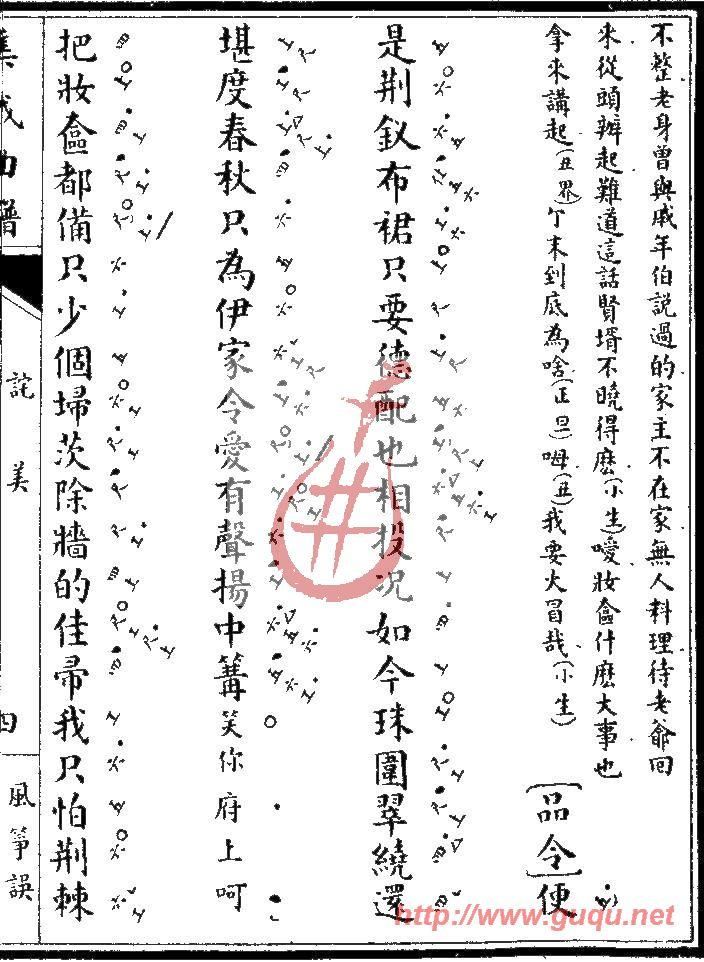 不整老身曾與戚年伯説過的家主不在家無人料理待老爺回
來從頭辦起難道這話賢壻不曉得麽(小生)噯妝奩什麽大事也
拿來講起(丑界)丫末到底為啥(正旦)呣(丑)我要大冒哉(小生)[品令]便
是荆釵布裙只要德配也相投况如今珠圍翠繞還
堪度春秋只為伊家令愛有聲揚中篝笑你府上呵
把妝奩都備只少個埽茨除牆的佳帚我只怕荆棘
集成曲譜
詫美
四
風筝誤
http://www.guqu.net